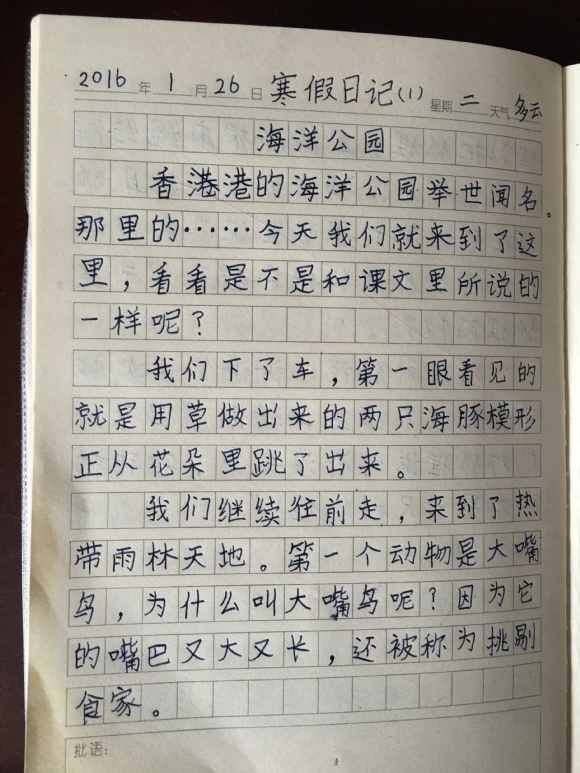 2016年1月26日 寒假日记(1) 星期二 天气多云
海洋公园
香港港的海洋公园举世闻名。
那里的……今天我们就来到了这
里，看看是不是和课文里所说的
一样呢？
我们下了车，第一眼看见的
就是用草做出来的两只海豚模形
正从花朵里跳了出来。
我们继续往前走，来到了热
带雨林天地。第一个动物是大嘴
鸟，为什么叫大嘴鸟呢？因为它
的嘴巴又大又长，还被称为挑剔
食家。
批语：